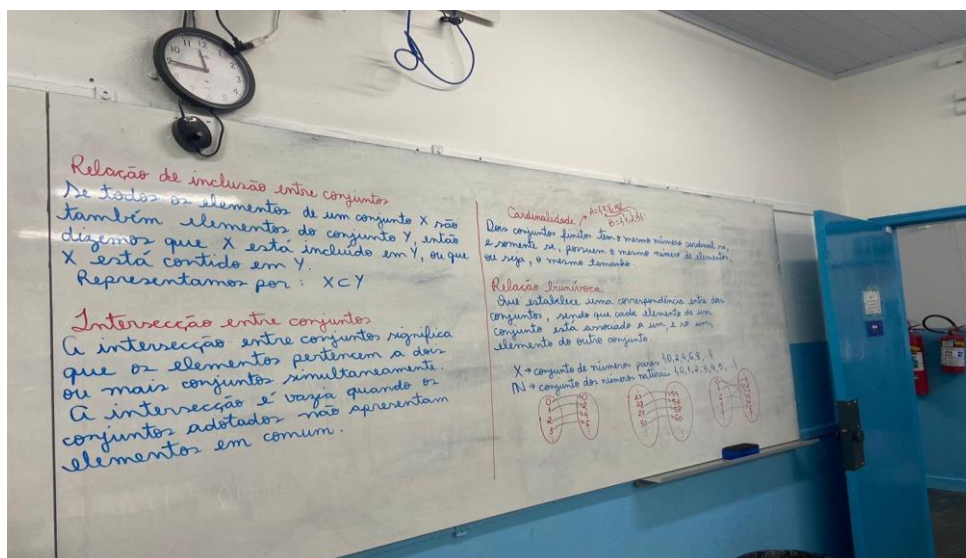 Relação de inclusão entre conjuntos
Se todos os elementos de um conjunto X são
também elementos do conjunto Y, então
dizemos que X está incluído em Y, ou que
X está contido em Y.
Representamos por: X ⊂ Y
Intersecção entre conjuntos
A intersecção entre conjuntos significa
que os elementos pertencem a dois
ou mais conjuntos simultaneamente.
A intersecção é vazia quando os
conjuntos adotados não apresentam
elementos em comum.
Cardinalidade
Dois conjuntos finitos têm o mesmo número cardinal se,
e somente se, possuem o mesmo número de elementos,
ou seja, o mesmo tamanho.
Relação biunívoca
Que estabelece uma correspondência entre dois
conjuntos, sendo que cada elemento de um
conjunto está associado a um, e só um,
elemento do outro conjunto.
X → conjunto de números pares {0,2,4,6,8,
IN → conjunto dos números naturais {0,1,2,3,4,5,...}